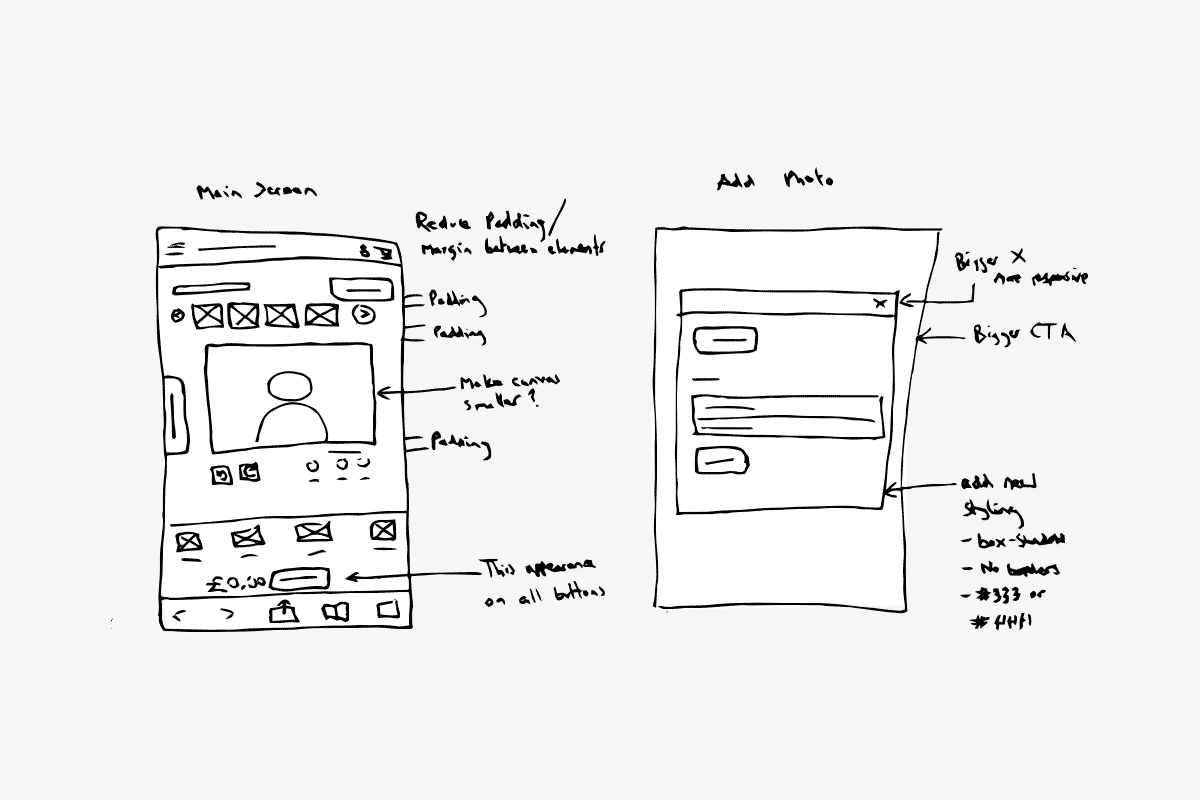 Main Screen
Reduce Padding/
Margin between elements
Padding
Padding
Make canvas
smaller?
Padding
£0.00
This appearance
on all buttons
Add Photo
X
Bigger X
more responsive
Bigger CTA
add new
styling
- box-shadow
- No borders
- #333 or